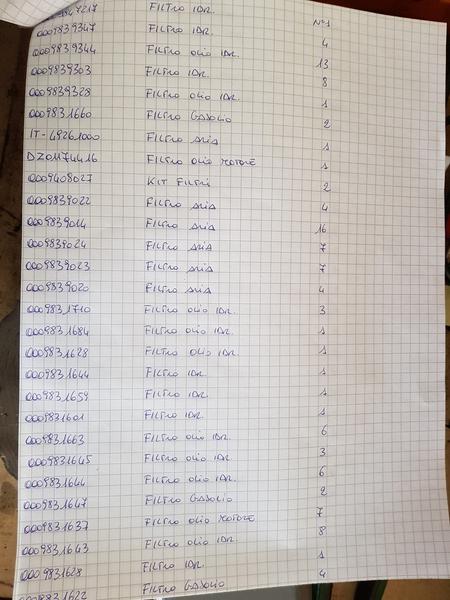 FILTRO IDR. N°1
0009839347 FILTRO IDR. 4
0009839344 FILTRO OLIO IDR. 13
0009839303 FILTRO IDR. 8
0009839328 FILTRO OLIO IDR. 1
0009831660 FILTRO GASOLIO 2
IT-49261000 FILTRO ARIA 1
DZ01174416 FILTRO OLIO MOTORE 1
0009408027 KIT FILTRI 2
0009839022 FILTRO ARIA 4
0009839014 FILTRO ARIA 16
0009839024 FILTRO ARIA 7
0009839023 FILTRO ARIA 7
0009839020 FILTRO ARIA 4
0009831710 FILTRO OLIO IDR. 3
0009831684 FILTRO OLIO IDR. 1
0009831628 FILTRO OLIO IDR. 1
0009831644 FILTRO IDR. 1
0009831659 FILTRO IDR. 1
0009831601 FILTRO IDR. 1
0009831663 FILTRO OLIO IDR. 6
0009831645 FILTRO OLIO IDR. 3
0009831644 FILTRO OLIO IDR. 6
0009831647 FILTRO GASOLIO 2
0009831637 FILTRO OLIO MOTORE 7
0009831643 FILTRO OLIO IDR. 8
0009831628 FILTRO IDR. 1
0009831622 FILTRO GASOLIO 4